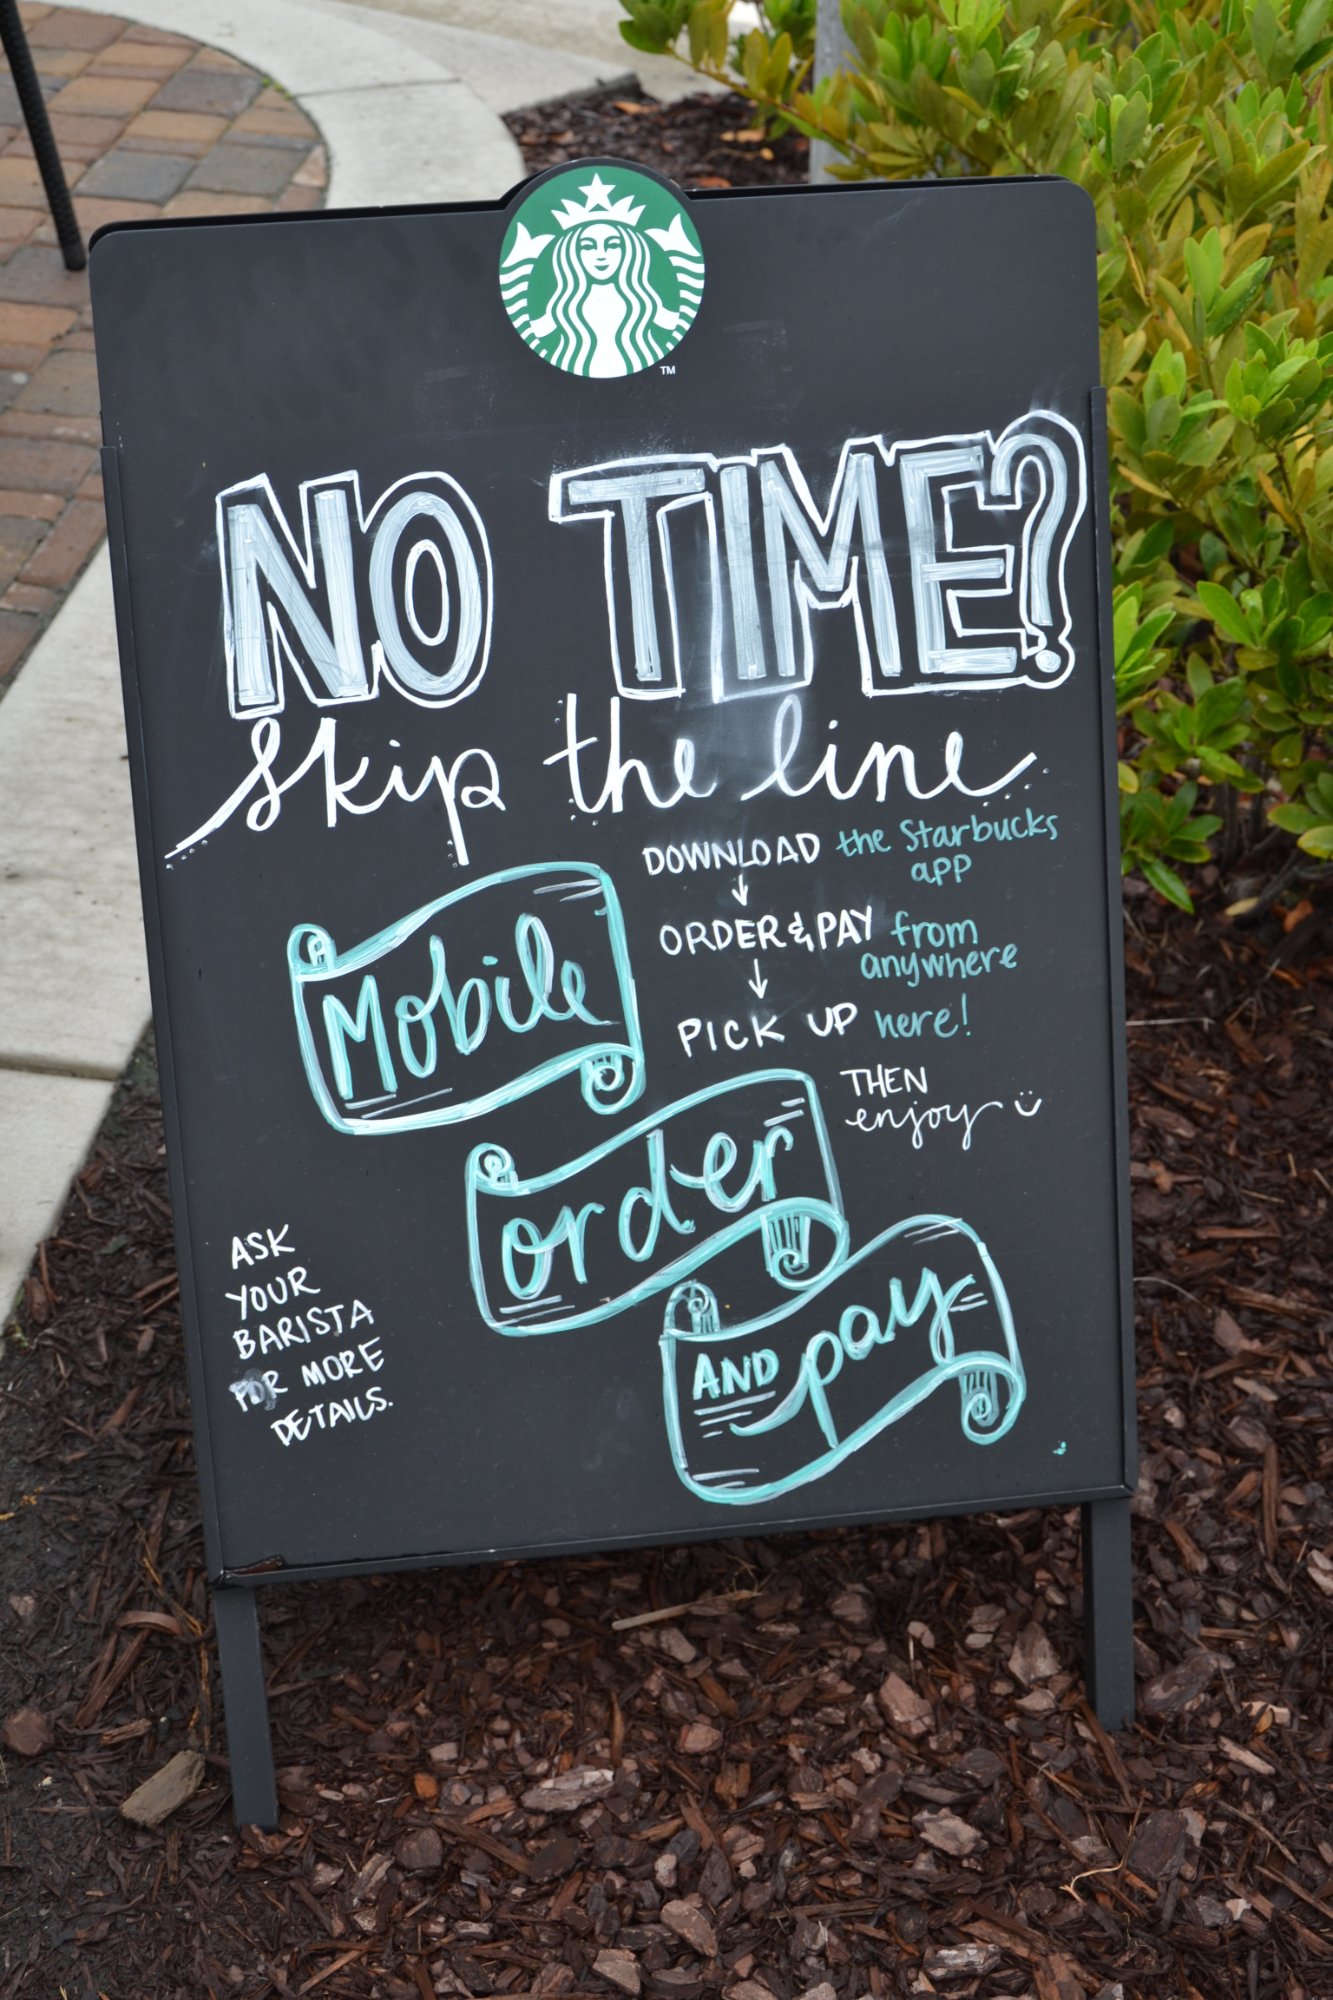 TM
NO TIME?
skip the line
DOWNLOAD the Starbucks
app
ORDER & PAY from
anywhere
PICK UP here!
THEN
enjoy
Mobile
order
AND pay
ASK
YOUR
BARISTA
FOR MORE
DETAILS.